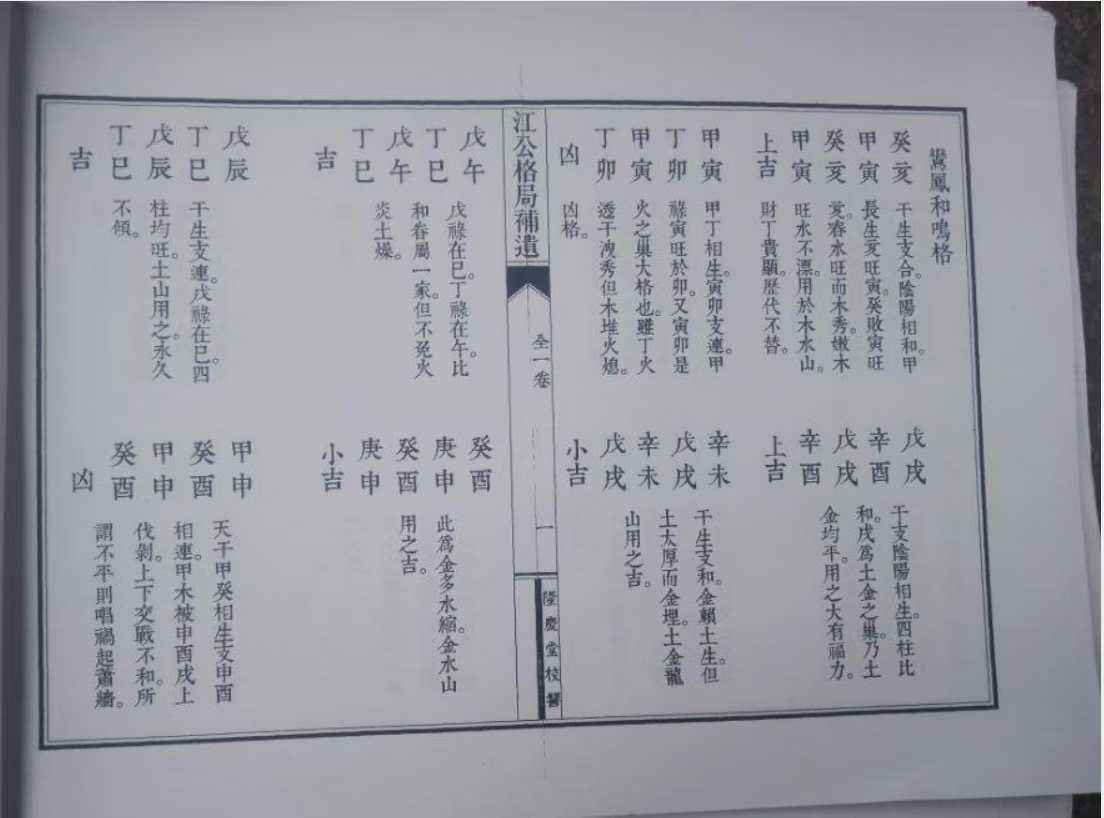 鸞鳳和鳴格
癸亥
甲寅
癸亥
甲寅
上吉
干生支合。陰陽相和。甲
長生亥旺寅。癸敗寅旺
亥。春水旺而木秀。嫩木
旺水不漂。用於木水山。
財丁貴顯。歷代不替。
甲寅
丁卯
甲寅
丁卯
凶
甲丁相生。寅卯支連。甲
祿寅旺於卯。又寅卯是
火之巢大格也。雖丁火
透干洩秀但木堆火熄。
凶格。
戊戌
辛酉
戊戌
辛酉
上吉
干支陰陽相生。四柱比
和。戌為土金之巢。乃土
金均平。用之大有福力。
辛未
戊戌
辛未
戊戌
小吉
干生支和。金賴土生。但
土太厚而金埋。土金龍
山用之吉。
江公格局補遺
全一卷
一
隆慶堂校讐
戊午
丁巳
戊午
丁巳
吉
戊祿在巳。丁祿在午。比
和眷屬一家。但不免火
炎土燥。
戊辰
丁巳
戊辰
丁巳
吉
干生支連。戊祿在巳。四
柱均旺。土山用之。永久
不傾。
癸酉
庚申
癸酉
庚申
小吉
此為金多水縮。金水山
用之吉。
甲申
癸酉
甲申
癸酉
凶
天干甲癸相生支申酉
相連。甲木被申酉戌上
伐剝。上下交戰不和。所
謂不平則唱禍起蕭牆。